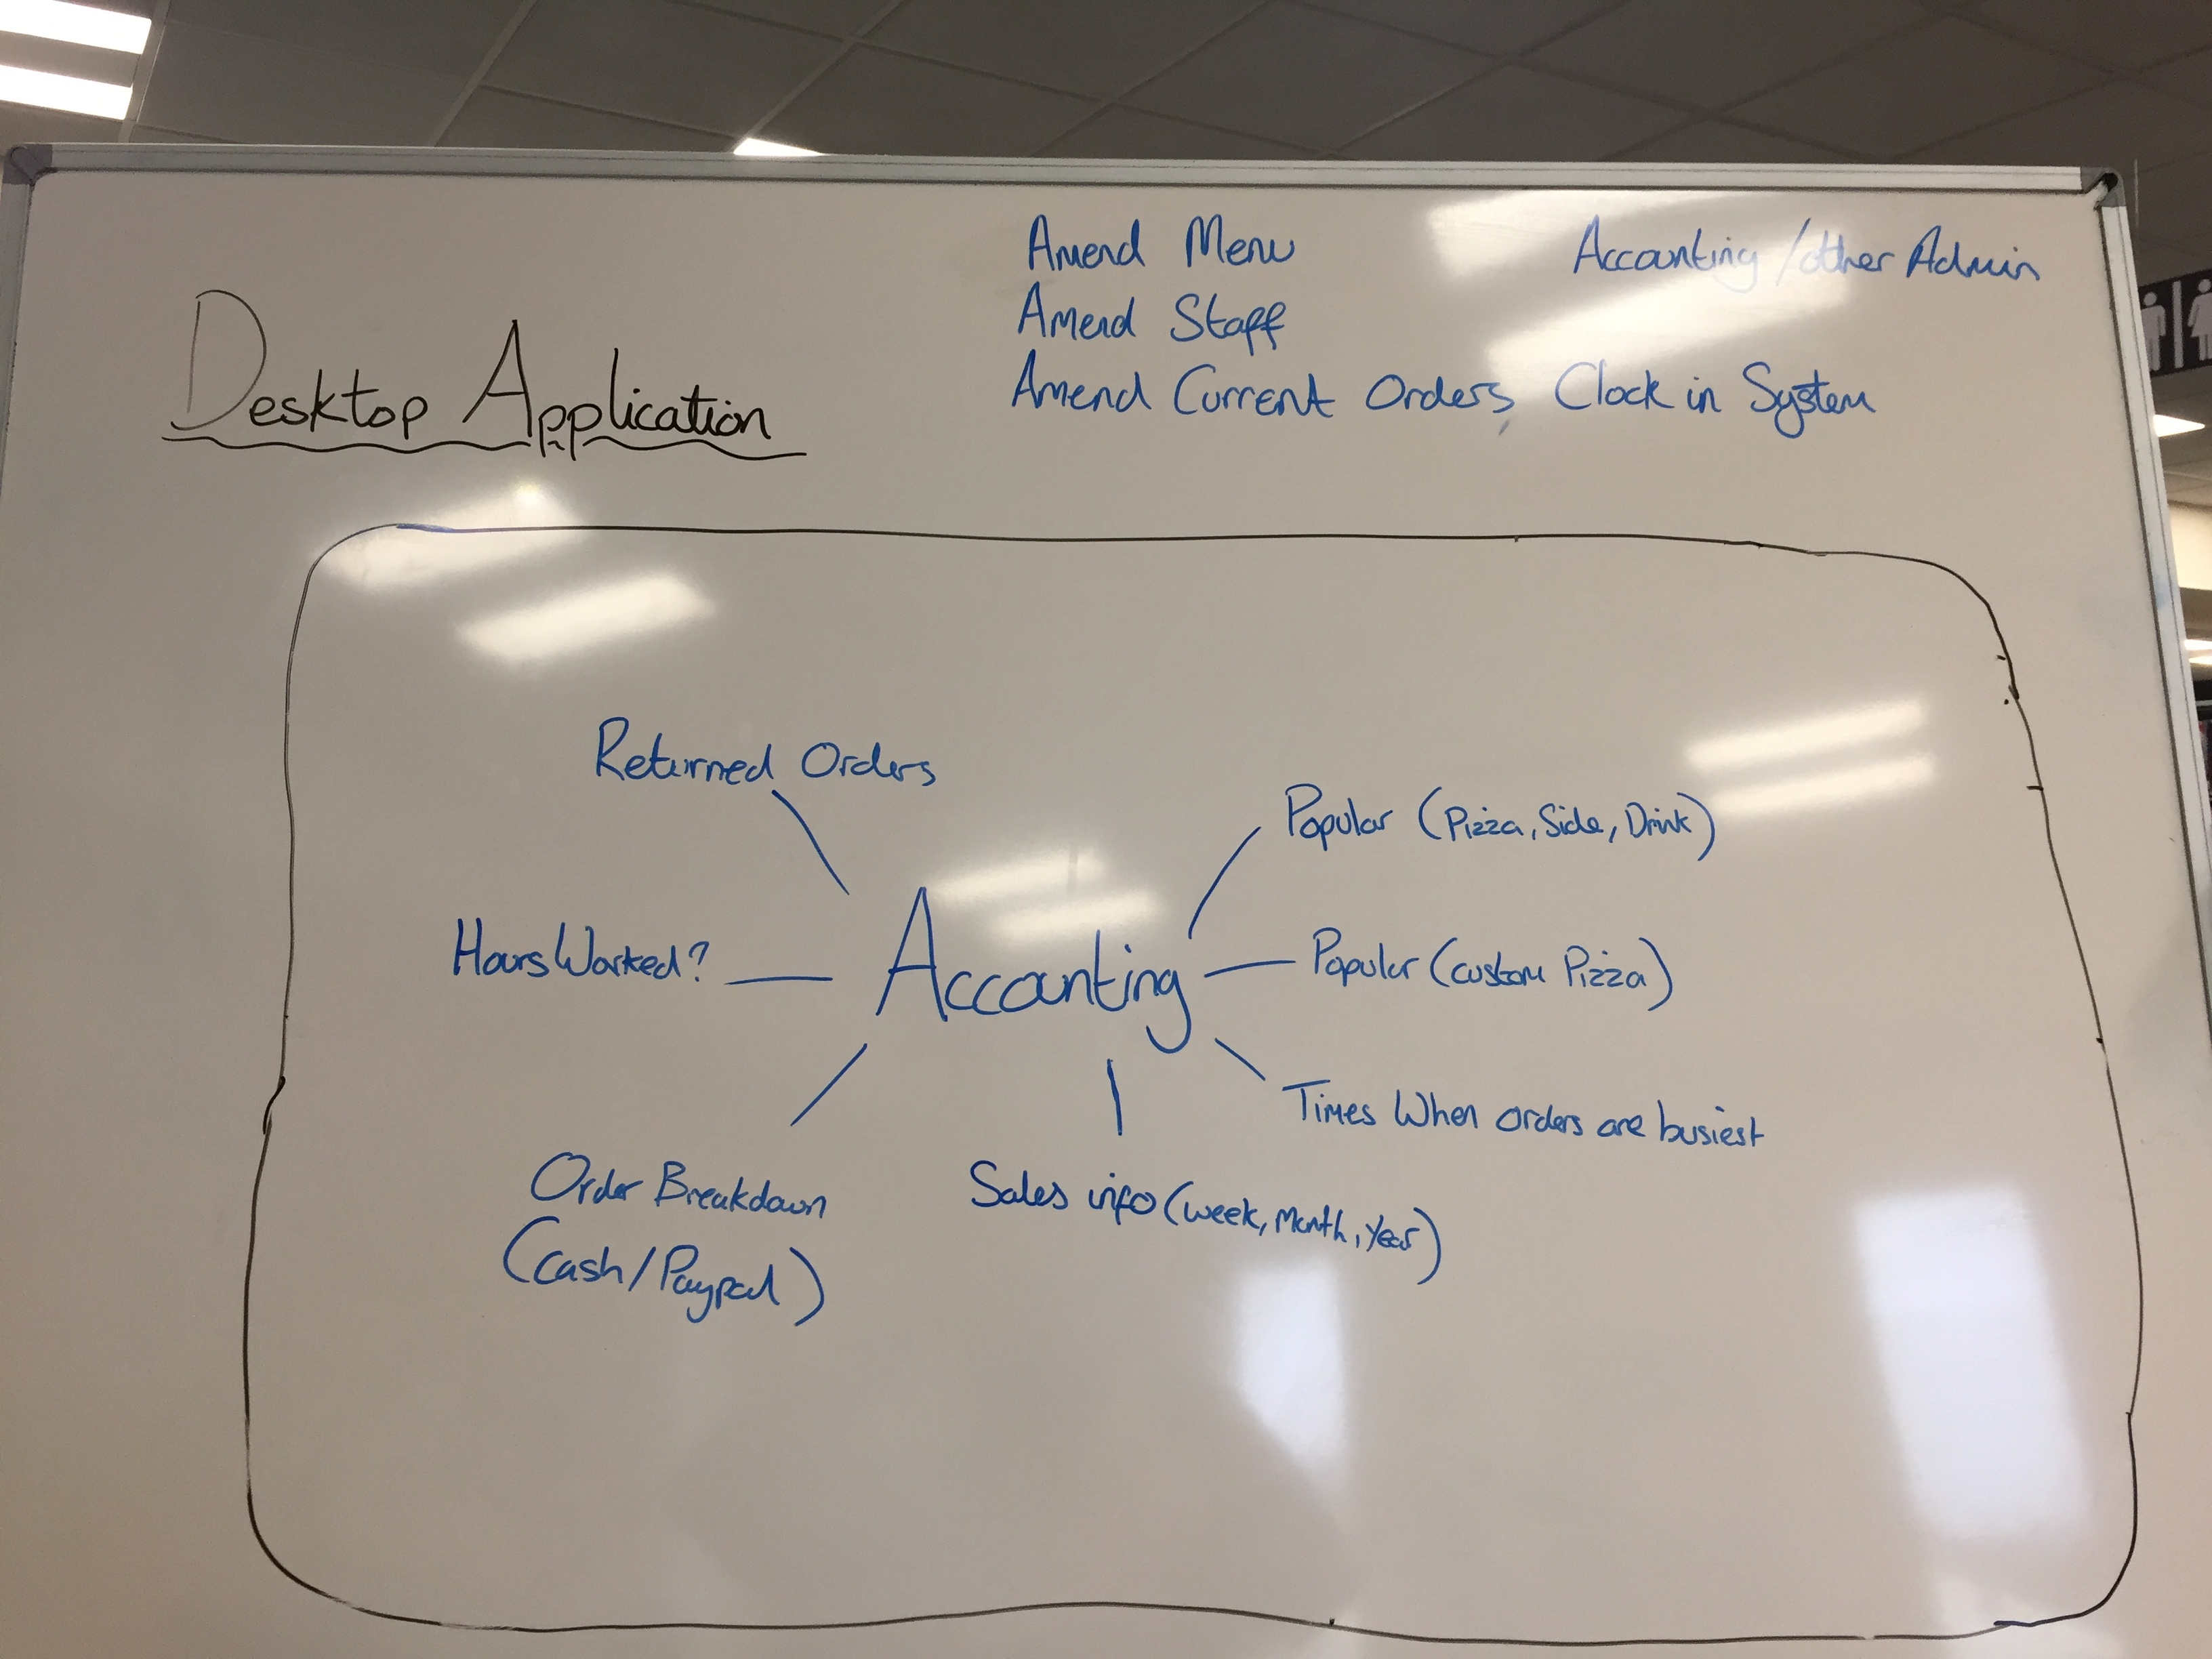 Amend Menu
Accounting / other Admin
Amend Staff
Amend Current Orders, Clock in System
Desktop Application
Returned Orders
Popular (Pizza, Side, Drink)
Hours Worked?
Accounting
Popular (custom Pizza)
Times When orders are busiest
Order Breakdown
(Cash/Paypal)
Sales info (week, Month, Year)